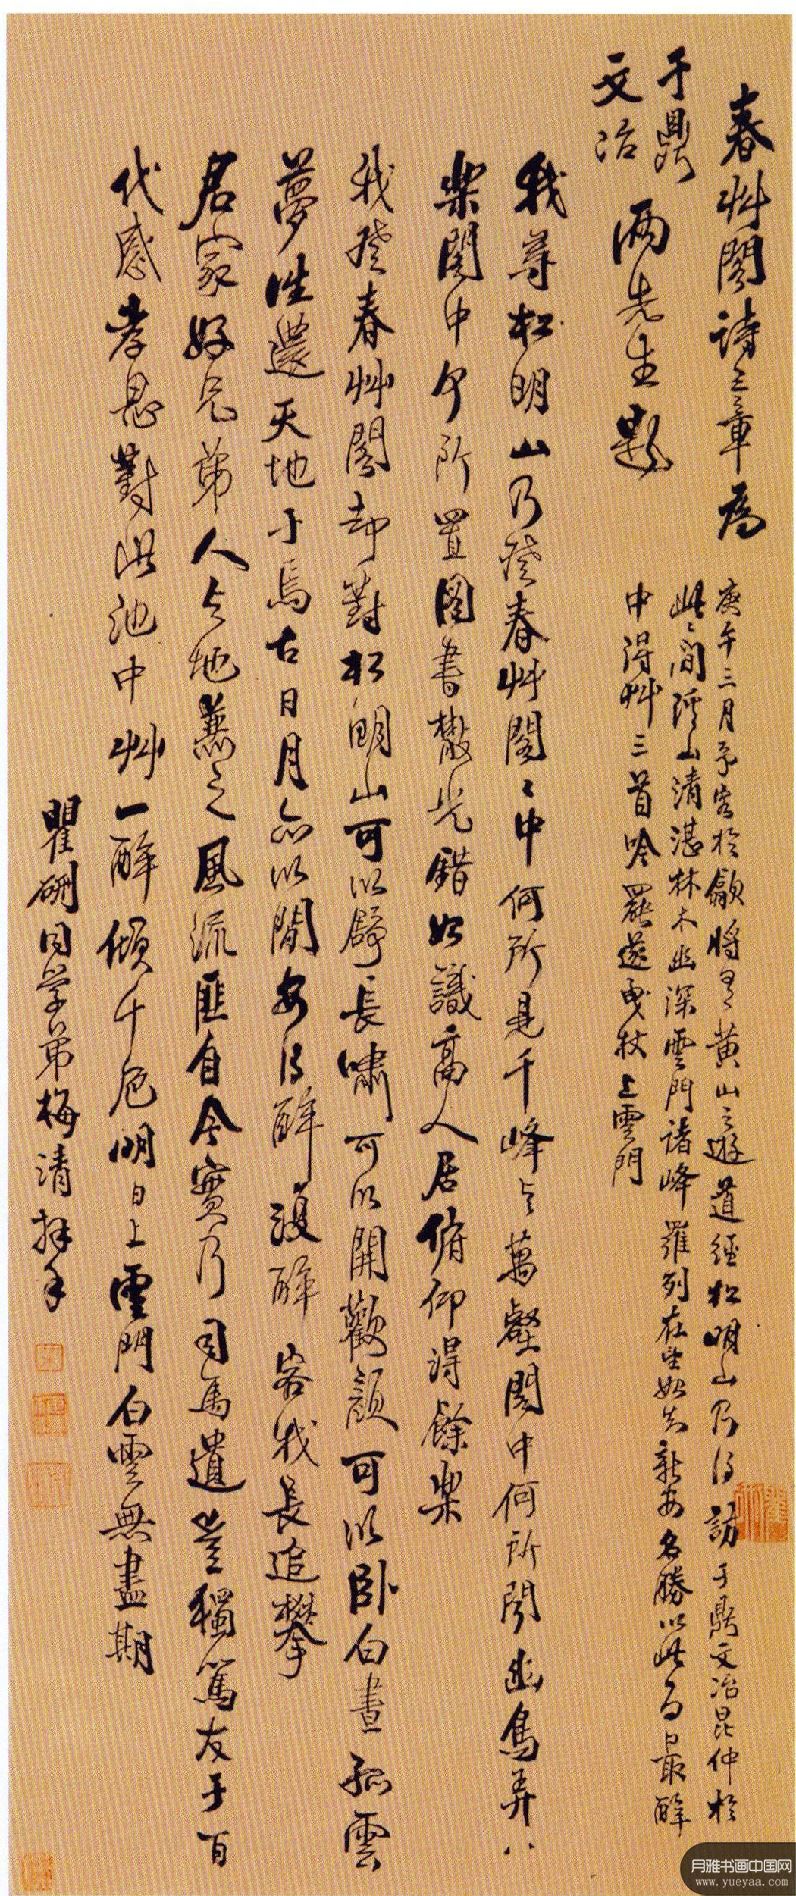 春艸閣詩三章為
于鼎
文冶
兩先生題
庚午三月予客於歙將有黃山之遊道經松明山乃得訪于鼎文冶昆仲於
此此間谿山清湛林木幽深雲門諸峰羅列在望始知新安名勝以此為最醉
中得艸三首吟罷遂曳杖上雲門
我尋松明山乃登春艸閣閣中何所見千峰與萬壑閣中何所聞幽鳥弄八
樂閣中何所置圖書散光錯始識高人居俯仰得餘樂
我登春艸閣却對松明山可以舒長嘯可以開歡顏可以卧白晝孤雲
夢往還天地于焉古日月亦以閒安得醉復醉客我長追攀
君家好兄弟人與地兼之風流匪自今實乃司馬遺豈獨篤友于百
代感孝思對此池中艸一醉傾千卮明日上雲門白雲無盡期
瞿硎同學弟梅清拜手
月雅书画中国网
www.yueyaa.com